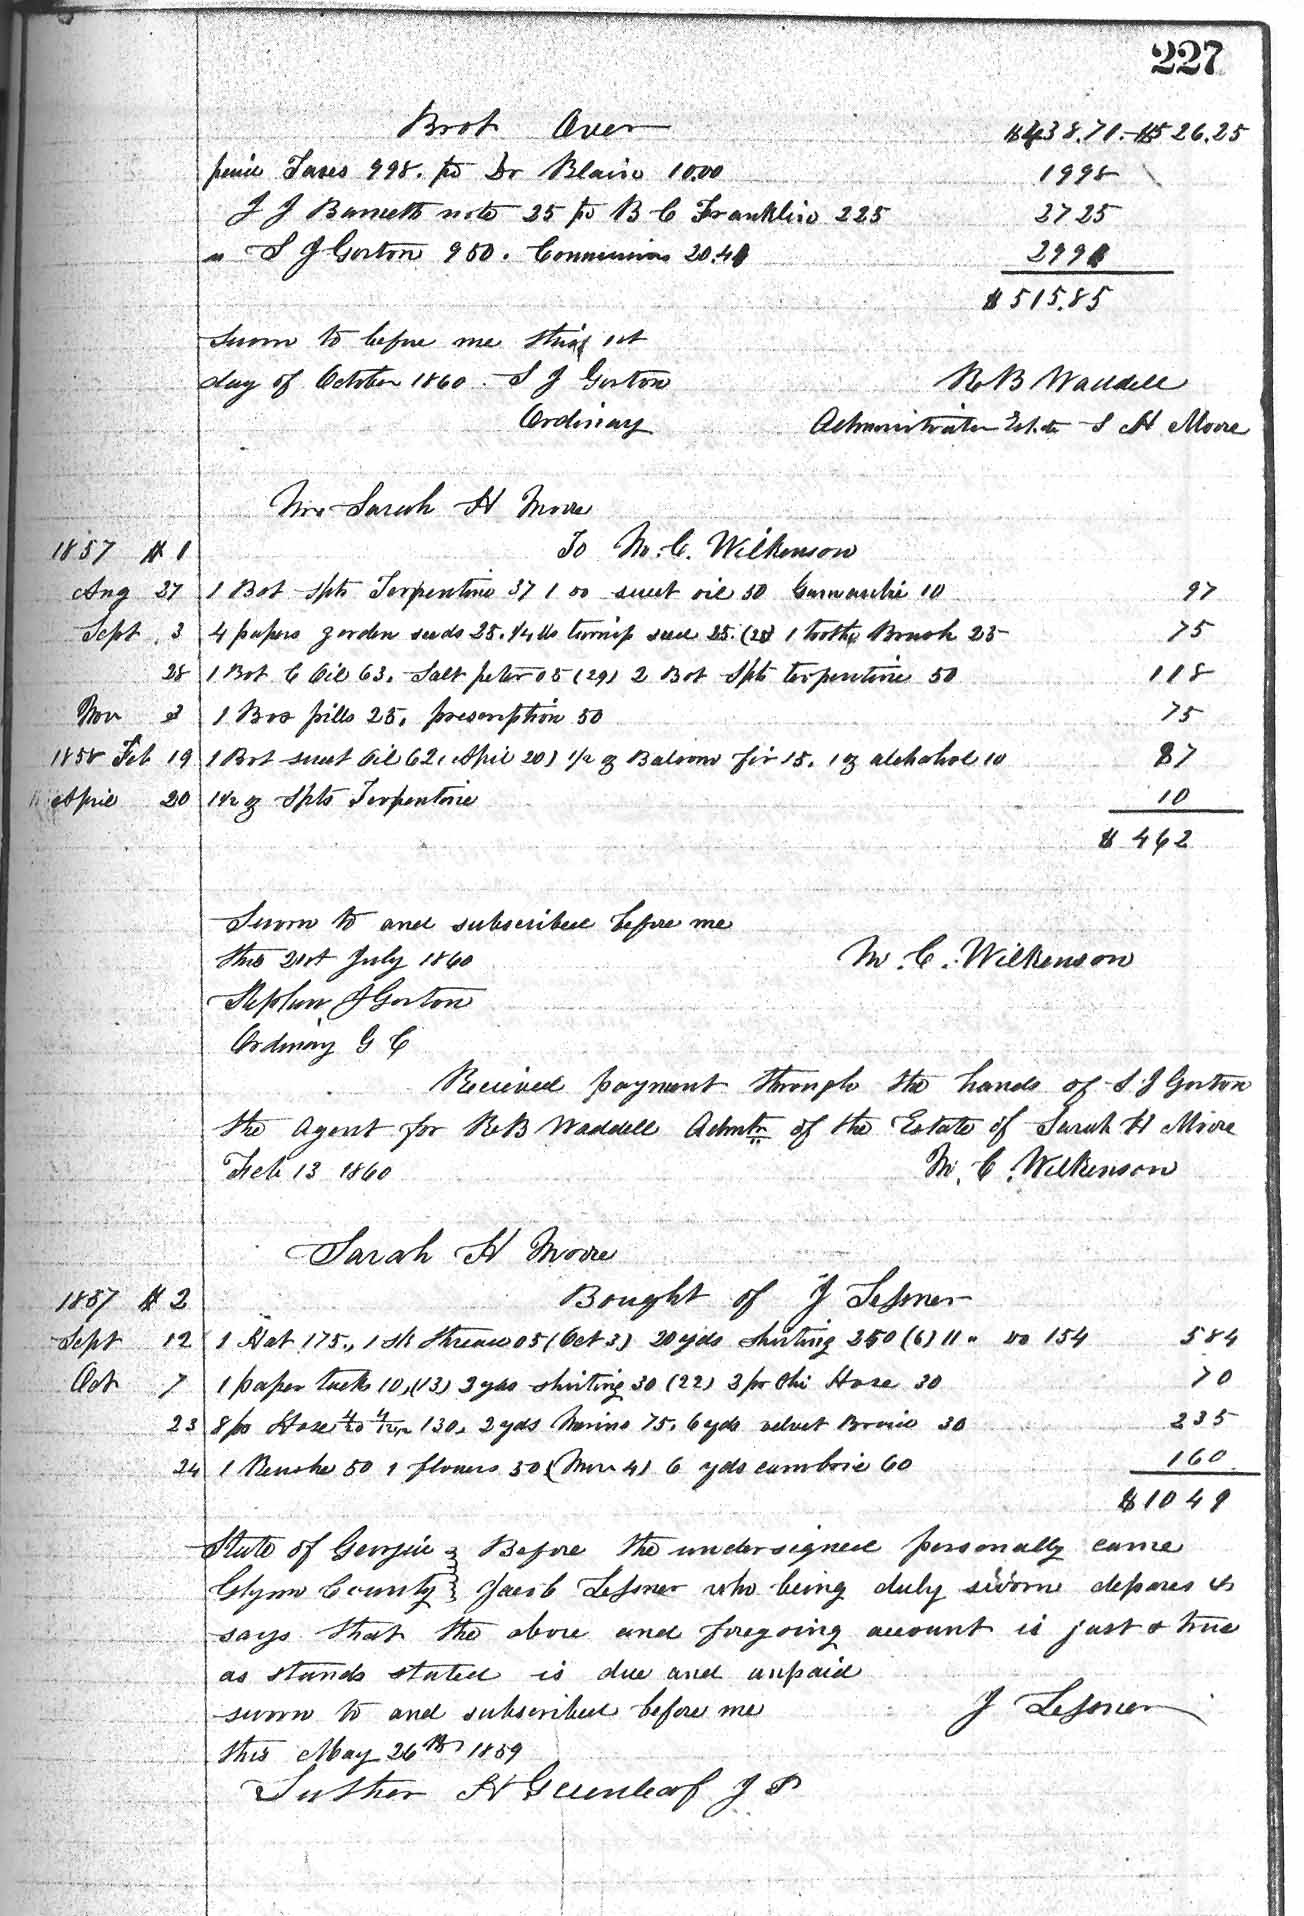 227
Brot Over $438.71. $526.25
Taxes 998. pd Dr Blain 10.00 1998
J J Barnett note 25 pd B C Franklin 225 2725
" S J Gorton 950. Commissions 20.41 2991
$515.85
Sworn to before me this 1st
day of October 1860. S J Gorton R B Waddell
Ordinary Administrator Est. S H Moore
Mrs Sarah H Moore
1857 # 1 To M. C. Wilkenson
Aug 27 1 Bot Spts Terpentine 37 1 do sweet oil 50 10 97
Sept 3 4 papers gorden seeds 25. 1/4 lb turnip seed 25. (25) 1 tooth Brush 25 75
28 1 Bot C Oil 63. Salt peter 05 (29) 2 Bot Spts terpentine 50 118
Nov 3 1 Box pills 25. prescription 50 75
1858 Feb 19 1 Bot sweet Oil 62. April 20) 1/2 oz Balsom fir 15. 1 oz alchohol 10 87
" April 20 1 1/2 oz Spts Terpentine 10
$ 462
Sworn to and subscribed before me
this 21st July 1860 M. C. Wilkenson
Stephen J Gorton
Ordinary G C
Recieved payment through the hands of S. J Gorton
the Agent for R B Waddell Admtr of the Estate of Sarah H Moore
Feb 13 1860 M. C. Wilkenson
Sarah H Moore
1857 # 2 Bought of J Lessner
Sept 12 1 Hat 175., 1 sk thread 05 (Oct 3) 20 yds shirting 250 (6) 11 " do 154 584
Oct 7 1 paper tacks 10, (13) 3 yds shirting 30 (22) 3 pr Chi Hose 30 70
23 8 pr Hose 130, 2 yds Merino 75, 6 yds velvet 30 235
24 1 50 1 flowers 50 (Nov 4) 6 yds cambric 60 160
$1049
State of Georgia } Before the undersigned personally came
Glynn County } Jacob Lessner who being duly sworn deposes &
says that the above and foregoing account is just & true
as stands stated is due and unpaid
sworn to and subscribed before me J Lessner
this May 26th 1859
Luther H Greenleaf J P